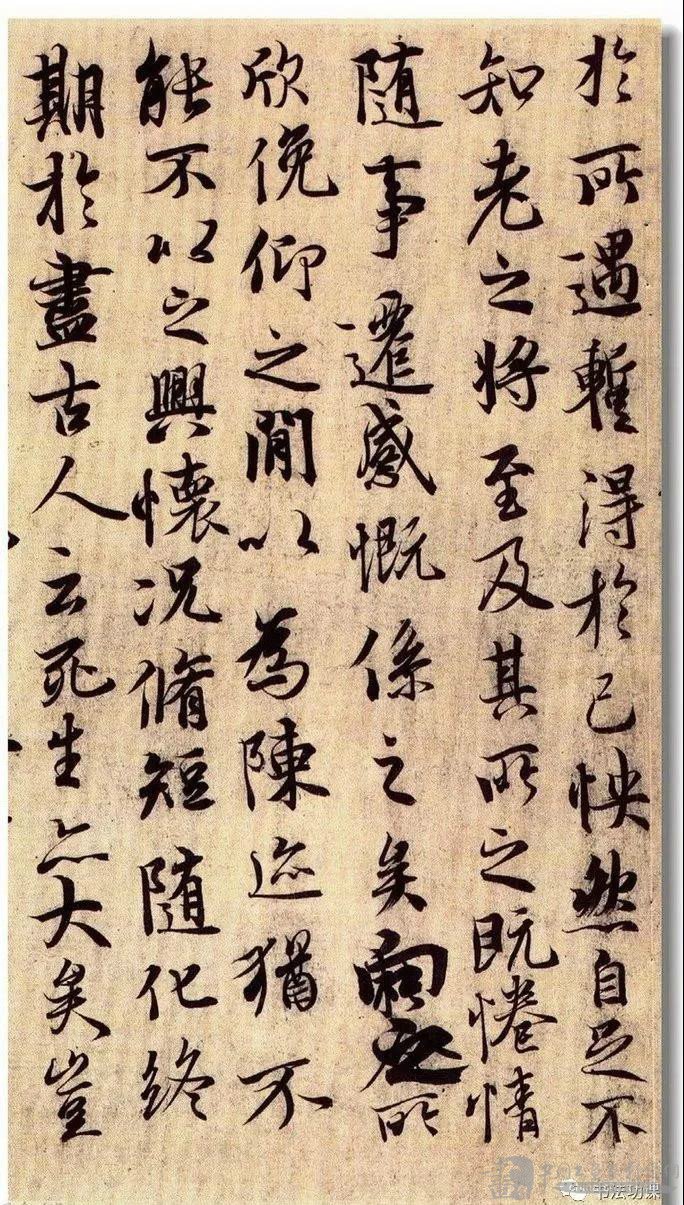 於所遇暫得於己怏然自足不
知老之將至及其所之既惓情
隨事遷感慨係之矣向之所
欣俛仰之閒以為陳迹猶不
能不以之興懷況脩短隨化終
期於盡古人云死生亦大矣豈
书法功课